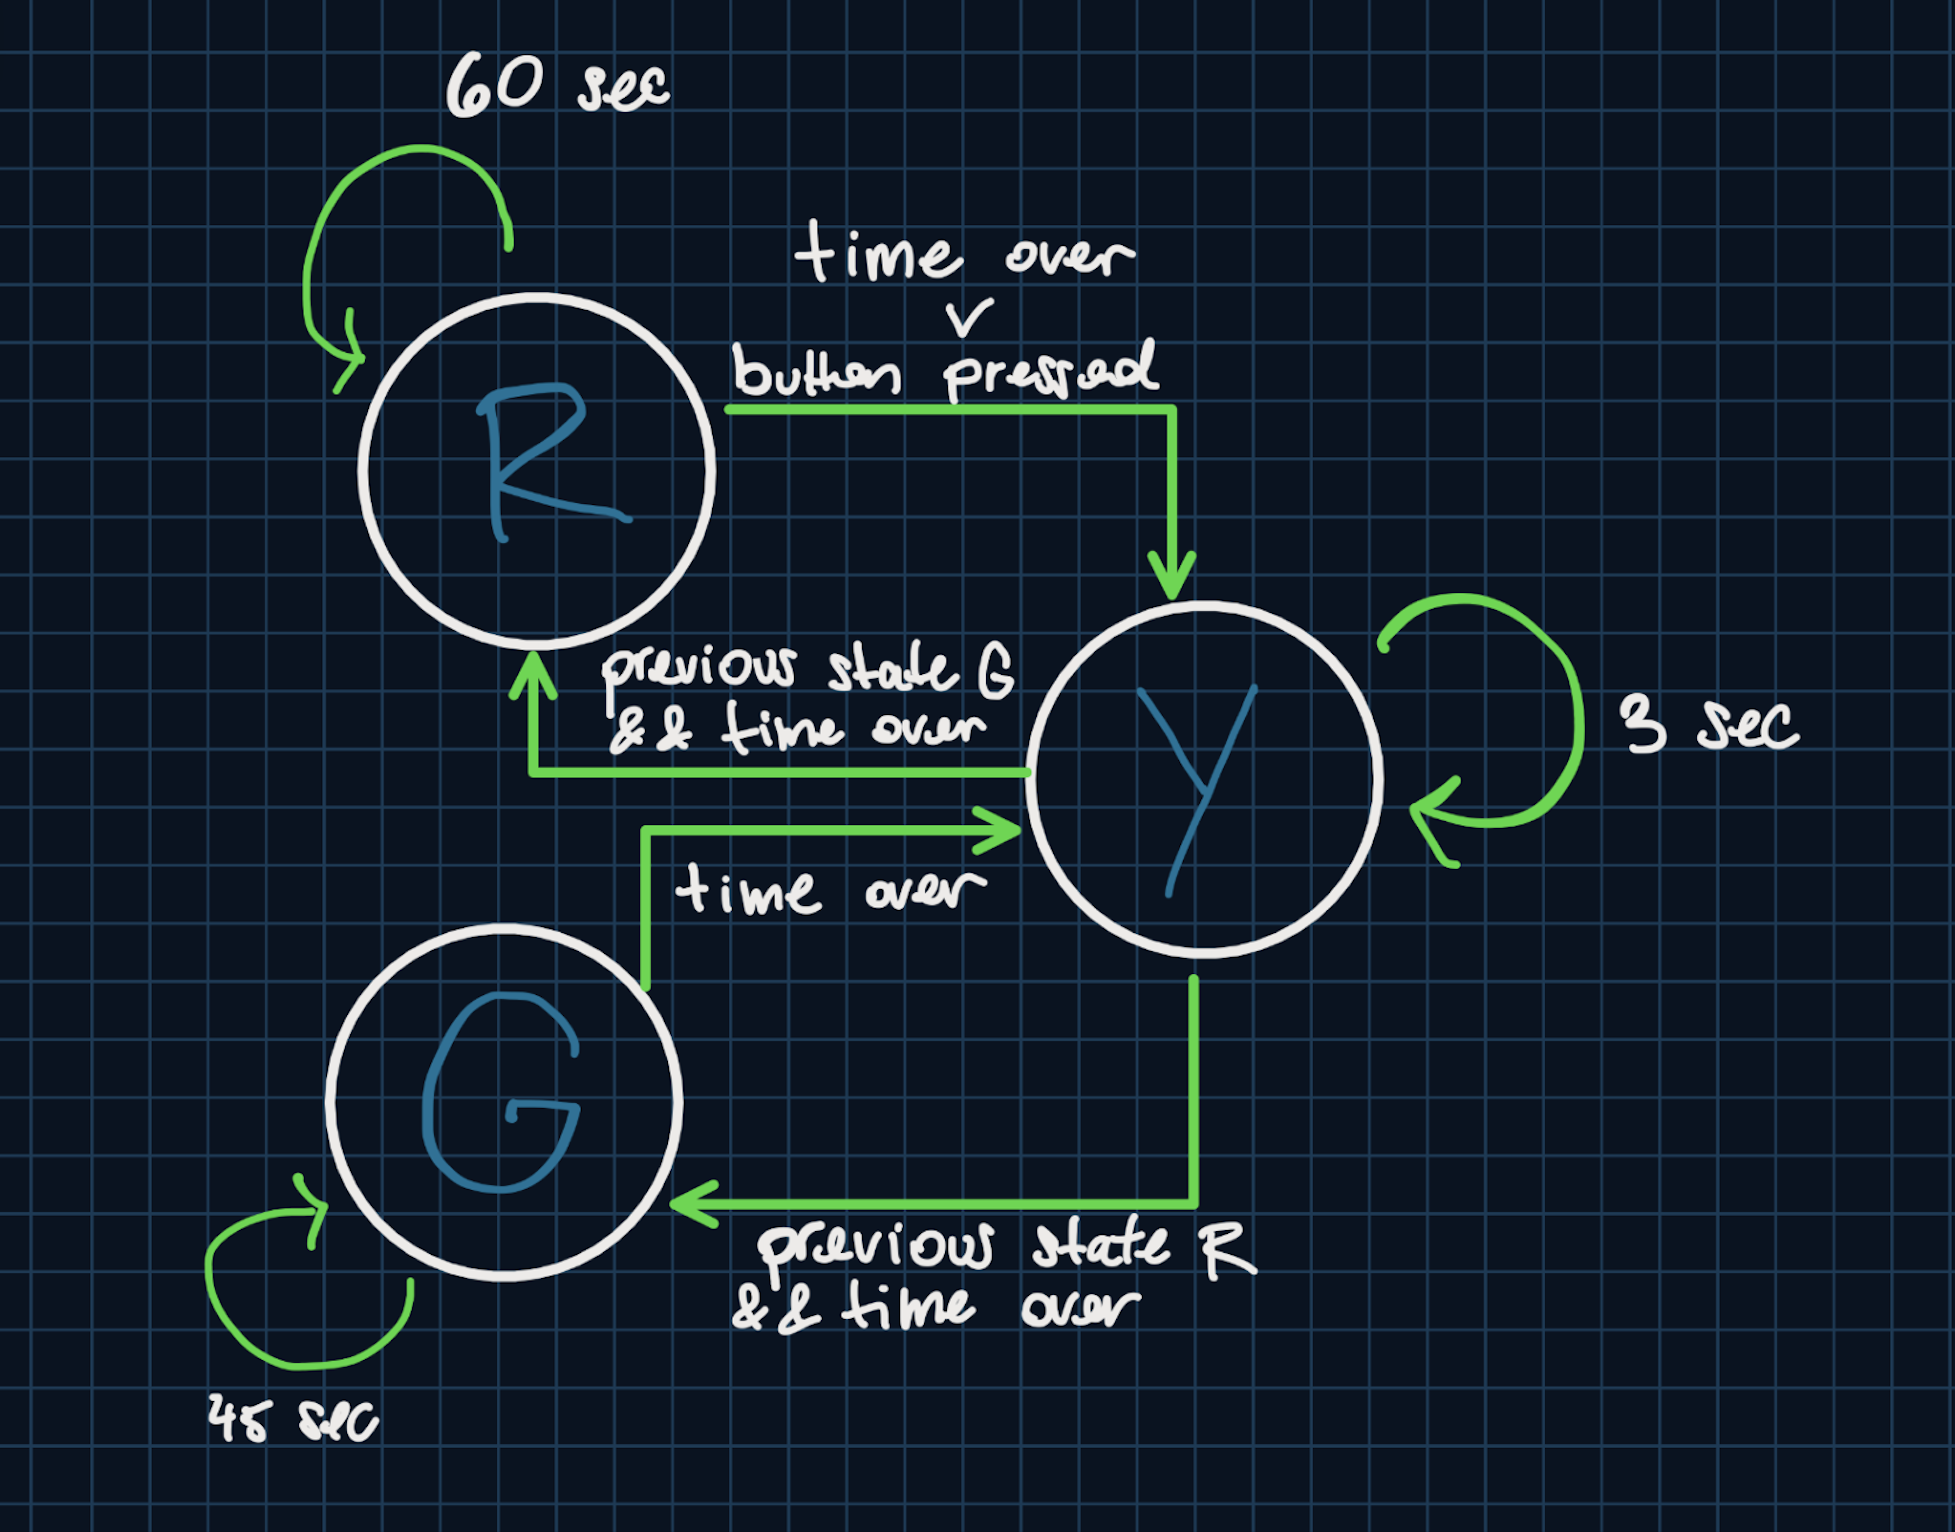 60 sec
time over
v
button pressed
R
previous state G
&& time over
Y
3 sec
time over
G
previous state R
&& time over
45 sec